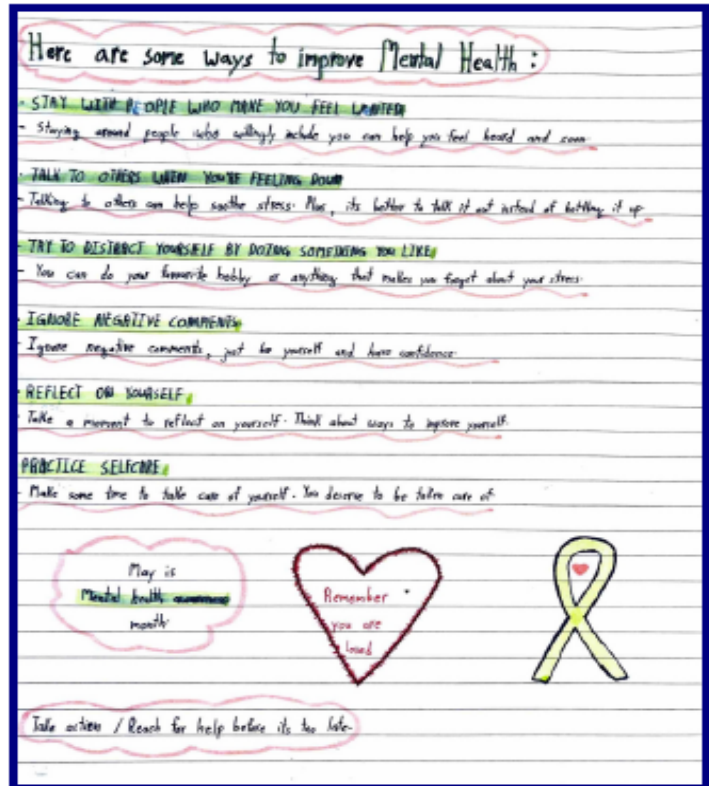 Here are some ways to improve Mental Health :
- STAY WITH PEOPLE WHO MAKE YOU FEEL WANTED
- Staying around people who willingly include you can help you feel heard and seen.
- TALK TO OTHERS WHEN YOU'RE FEELING DOWN
- Talking to others can help soothe stress. Plus, its better to talk it out instead of bottling it up
- TRY TO DISTRACT YOURSELF BY DOING SOMETHING YOU LIKE
- You can do your favourite hobby or anything that makes you forget about your stress.
- IGNORE NEGATIVE COMMENTS
- Ignore negative comments, just be yourself and have confidence
- REFLECT ON YOURSELF
- Take a moment to reflect on yourself. Think about ways to improve yourself.
PRACTICE SELFCARE
- Make some time to take care of yourself. You deserve to be taken care of
May is
Mental health awareness
month
Remember
you are
loved
Take action / Reach for help before its too late.